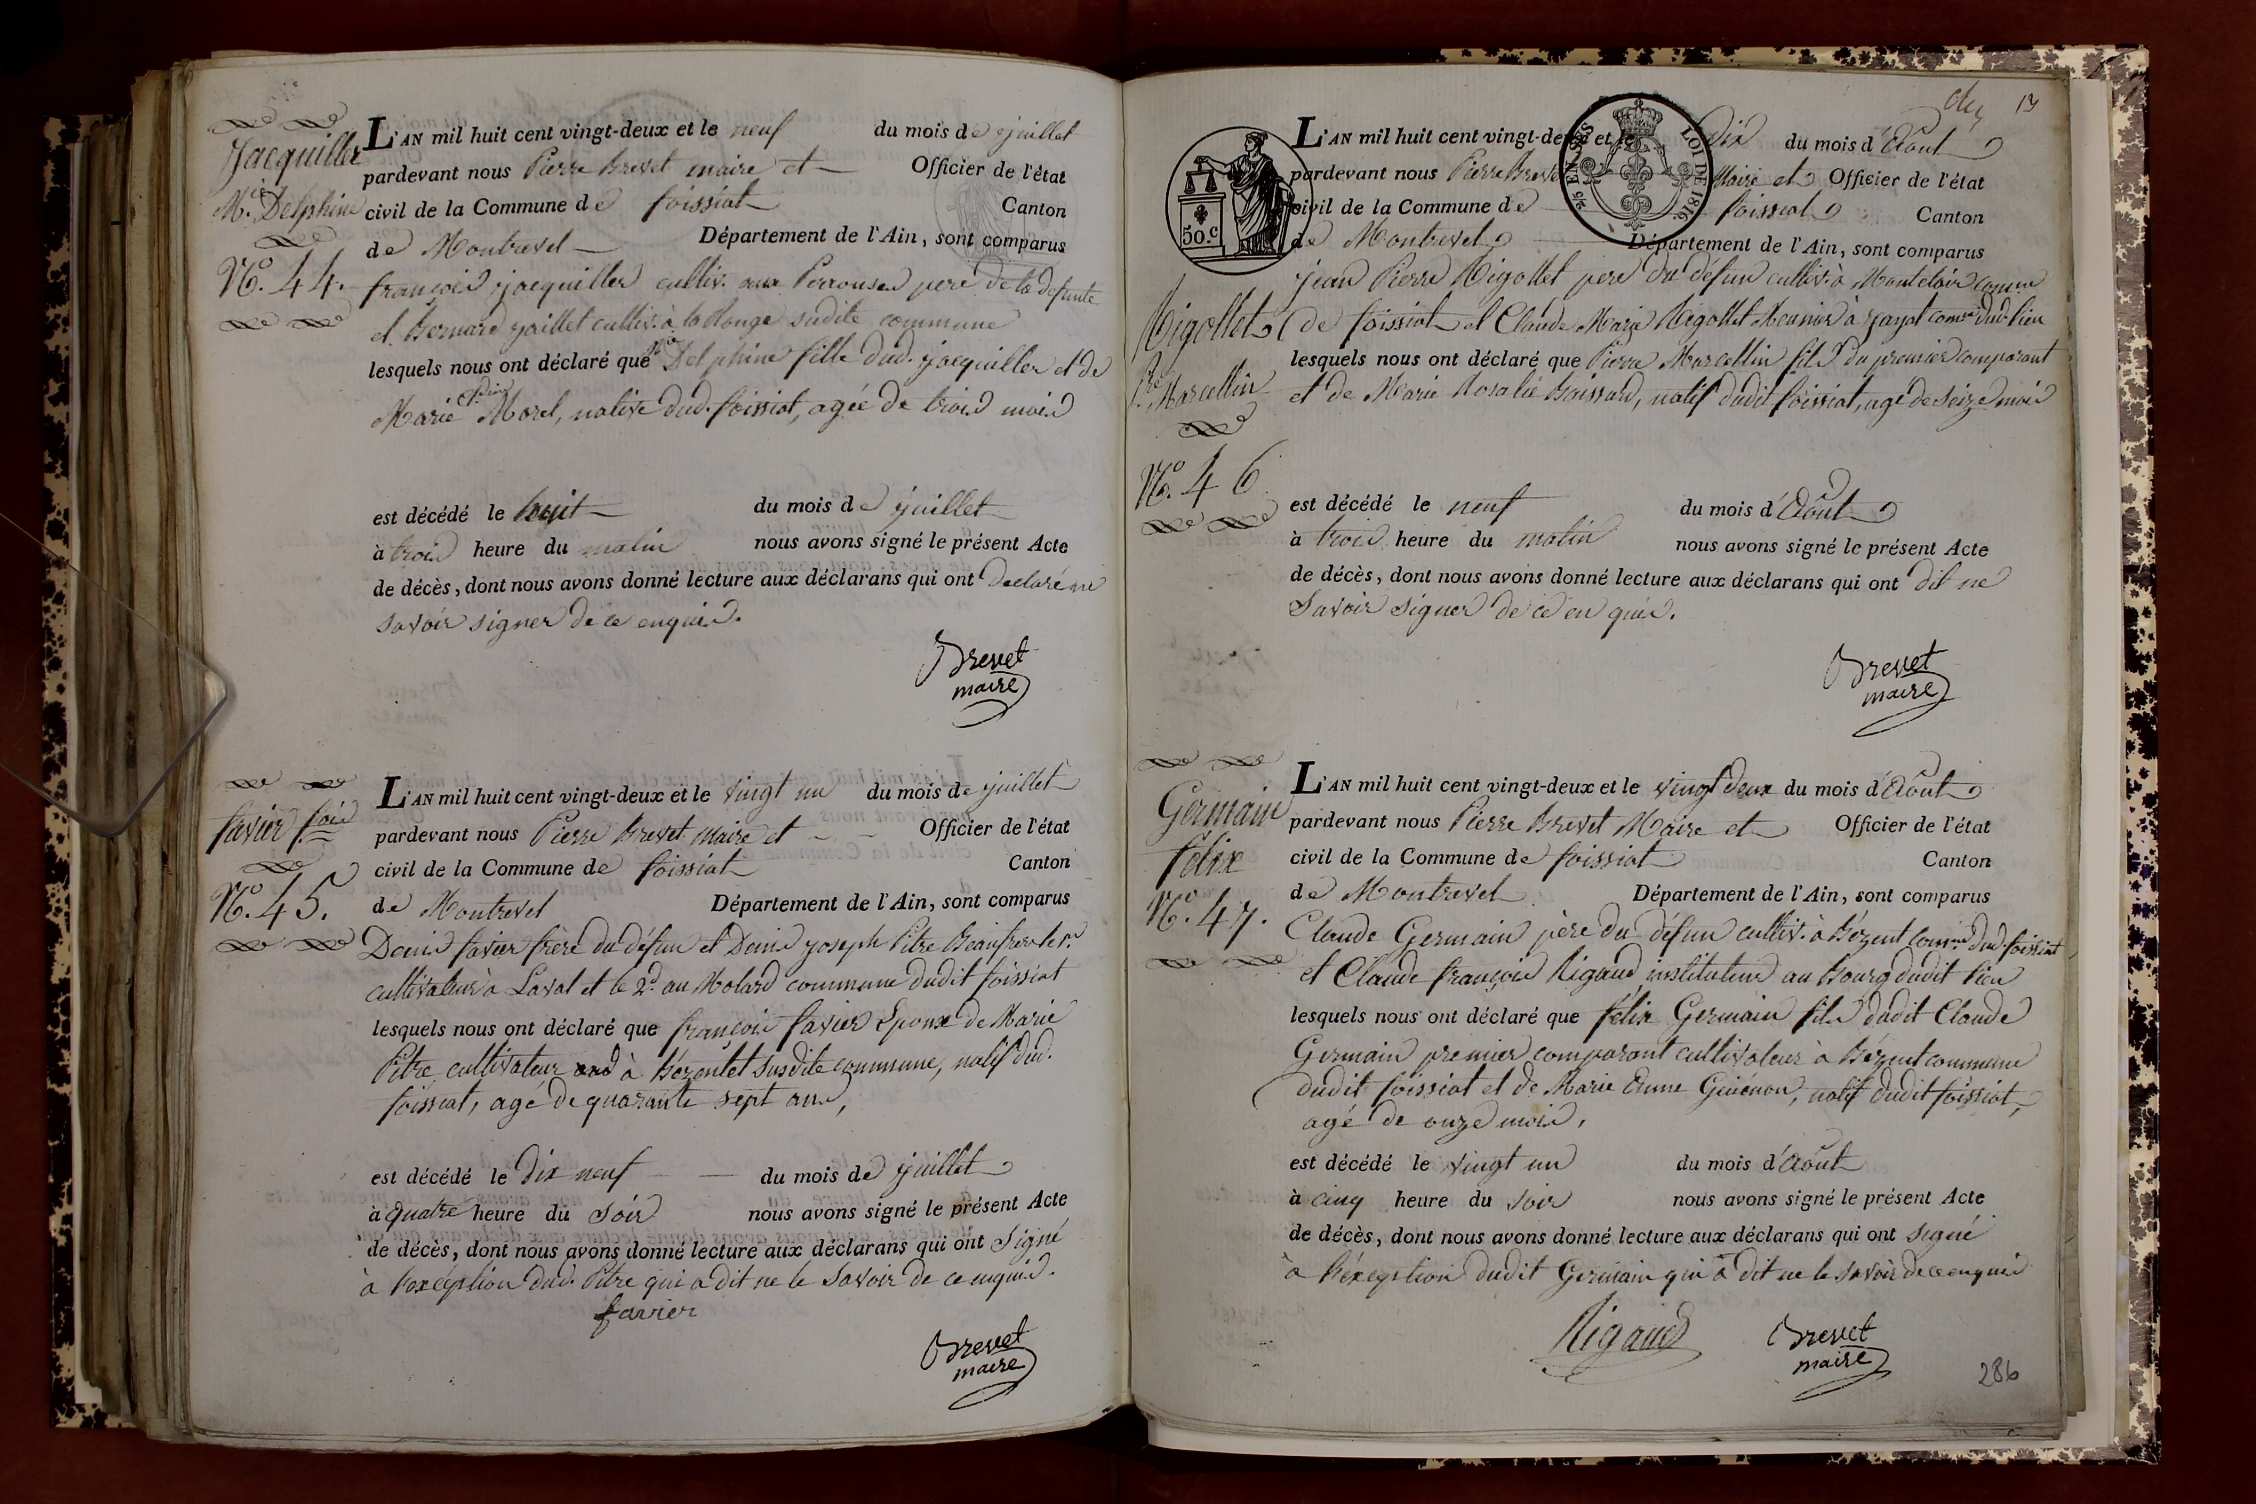 Jacquiller
Mie. Delphine
No. 44.
L'AN mil huit cent vingt-deux et le neuf du mois de juillet
pardevant nous Pierre Brevet maire et Officier de l'état
civil de la Commune de foissiat Canton
de Montrevel Département de l'Ain, sont comparus
françois jacquiller cultiv. aux Perrouses pere de la defunte
et Bernard jaillet cultiv. à susdite commune
lesquels nous ont déclaré que Mie Delphine fille dud. jacquiller et de
Marie Morel, native dud. foissiat, agée de trois mois
est décédé le huit du mois de juillet
à trois heure du matin nous avons signé le présent Acte
de décès, dont nous avons donné lecture aux déclarans qui ont declaré ne
savoir signer de ce enquis.
Brevet
maire
favier fois
No. 45.
L'AN mil huit cent vingt-deux et le vingt un du mois de juillet
pardevant nous Pierre Brevet maire et Officier de l'état
civil de la Commune de foissiat Canton
de Montrevel Département de l'Ain, sont comparus
Denis favier frère du défun et Denis joseph Pitre Beaufrere le 1r.
cultivateur à Laval et le 2d. au Molard commune dudit foissiat
lesquels nous ont déclaré que françois favier Epoux de Marie
Pitre cultivateur à Bézentet susdite commune, natif dud.
foissiat, agé de quarante sept ans,
est décédé le dix neuf du mois de juillet
à quatre heure du soir nous avons signé le présent Acte
de décès, dont nous avons donné lecture aux déclarans qui ont signé
à l'exéption dud. Pitre qui a dit ne le savoir de ce enquis.
favier
Brevet
maire
13
50.c
2/5 EN SUS
LOI DE 1816
Migollet
Pre. Marcellin
No. 46
L'AN mil huit cent vingt-deux et le Dix du mois d'Août
pardevant nous Pierre Brevet Maire et Officier de l'état
civil de la Commune de foissiat Canton
de Montrevel Département de l'Ain, sont comparus
jean Pierre Migollet pere du défun cultiv. à Montclair comune
de foissiat et Claude Marie Migollet Meunier à jayat comne dud. lieu
lesquels nous ont déclaré que Pierre Marcellin fils du premier comparant
et de Marie Rosalie Boissard, natif dudit foissiat, agé de seize mois
est décédé le neuf du mois d'Août
à trois heure du matin nous avons signé le présent Acte
de décès, dont nous avons donné lecture aux déclarans qui ont dit ne
Savoir signer de ce en quis.
Brevet
maire
Germain
félix
No. 47.
L'AN mil huit cent vingt-deux et le vingt deux du mois d'Août
pardevant nous Pierre Brevet Maire et Officier de l'état
civil de la Commune de foissiat Canton
de Montrevel Département de l'Ain, sont comparus
Claude Germain père du défun cultiv. à Bézent comne dud. foissiat
et Claude françois Rigaud instituteur au Bourg dudit lieu
lesquels nous ont déclaré que félix Germain fils dudit Claude
Germain premier comparant cultivateur à Bézent commune
dudit foissiat et de Marie Anne Guénon, natif dudit foissiat,
agé de onze mois,
est décédé le vingt un du mois d'Août
à cinq heure du soir nous avons signé le présent Acte
de décès, dont nous avons donné lecture aux déclarans qui ont signé
à l'exéption dudit Germain qui a dit ne le savoir de ce enquis
Rigaud
Brevet
maire
286